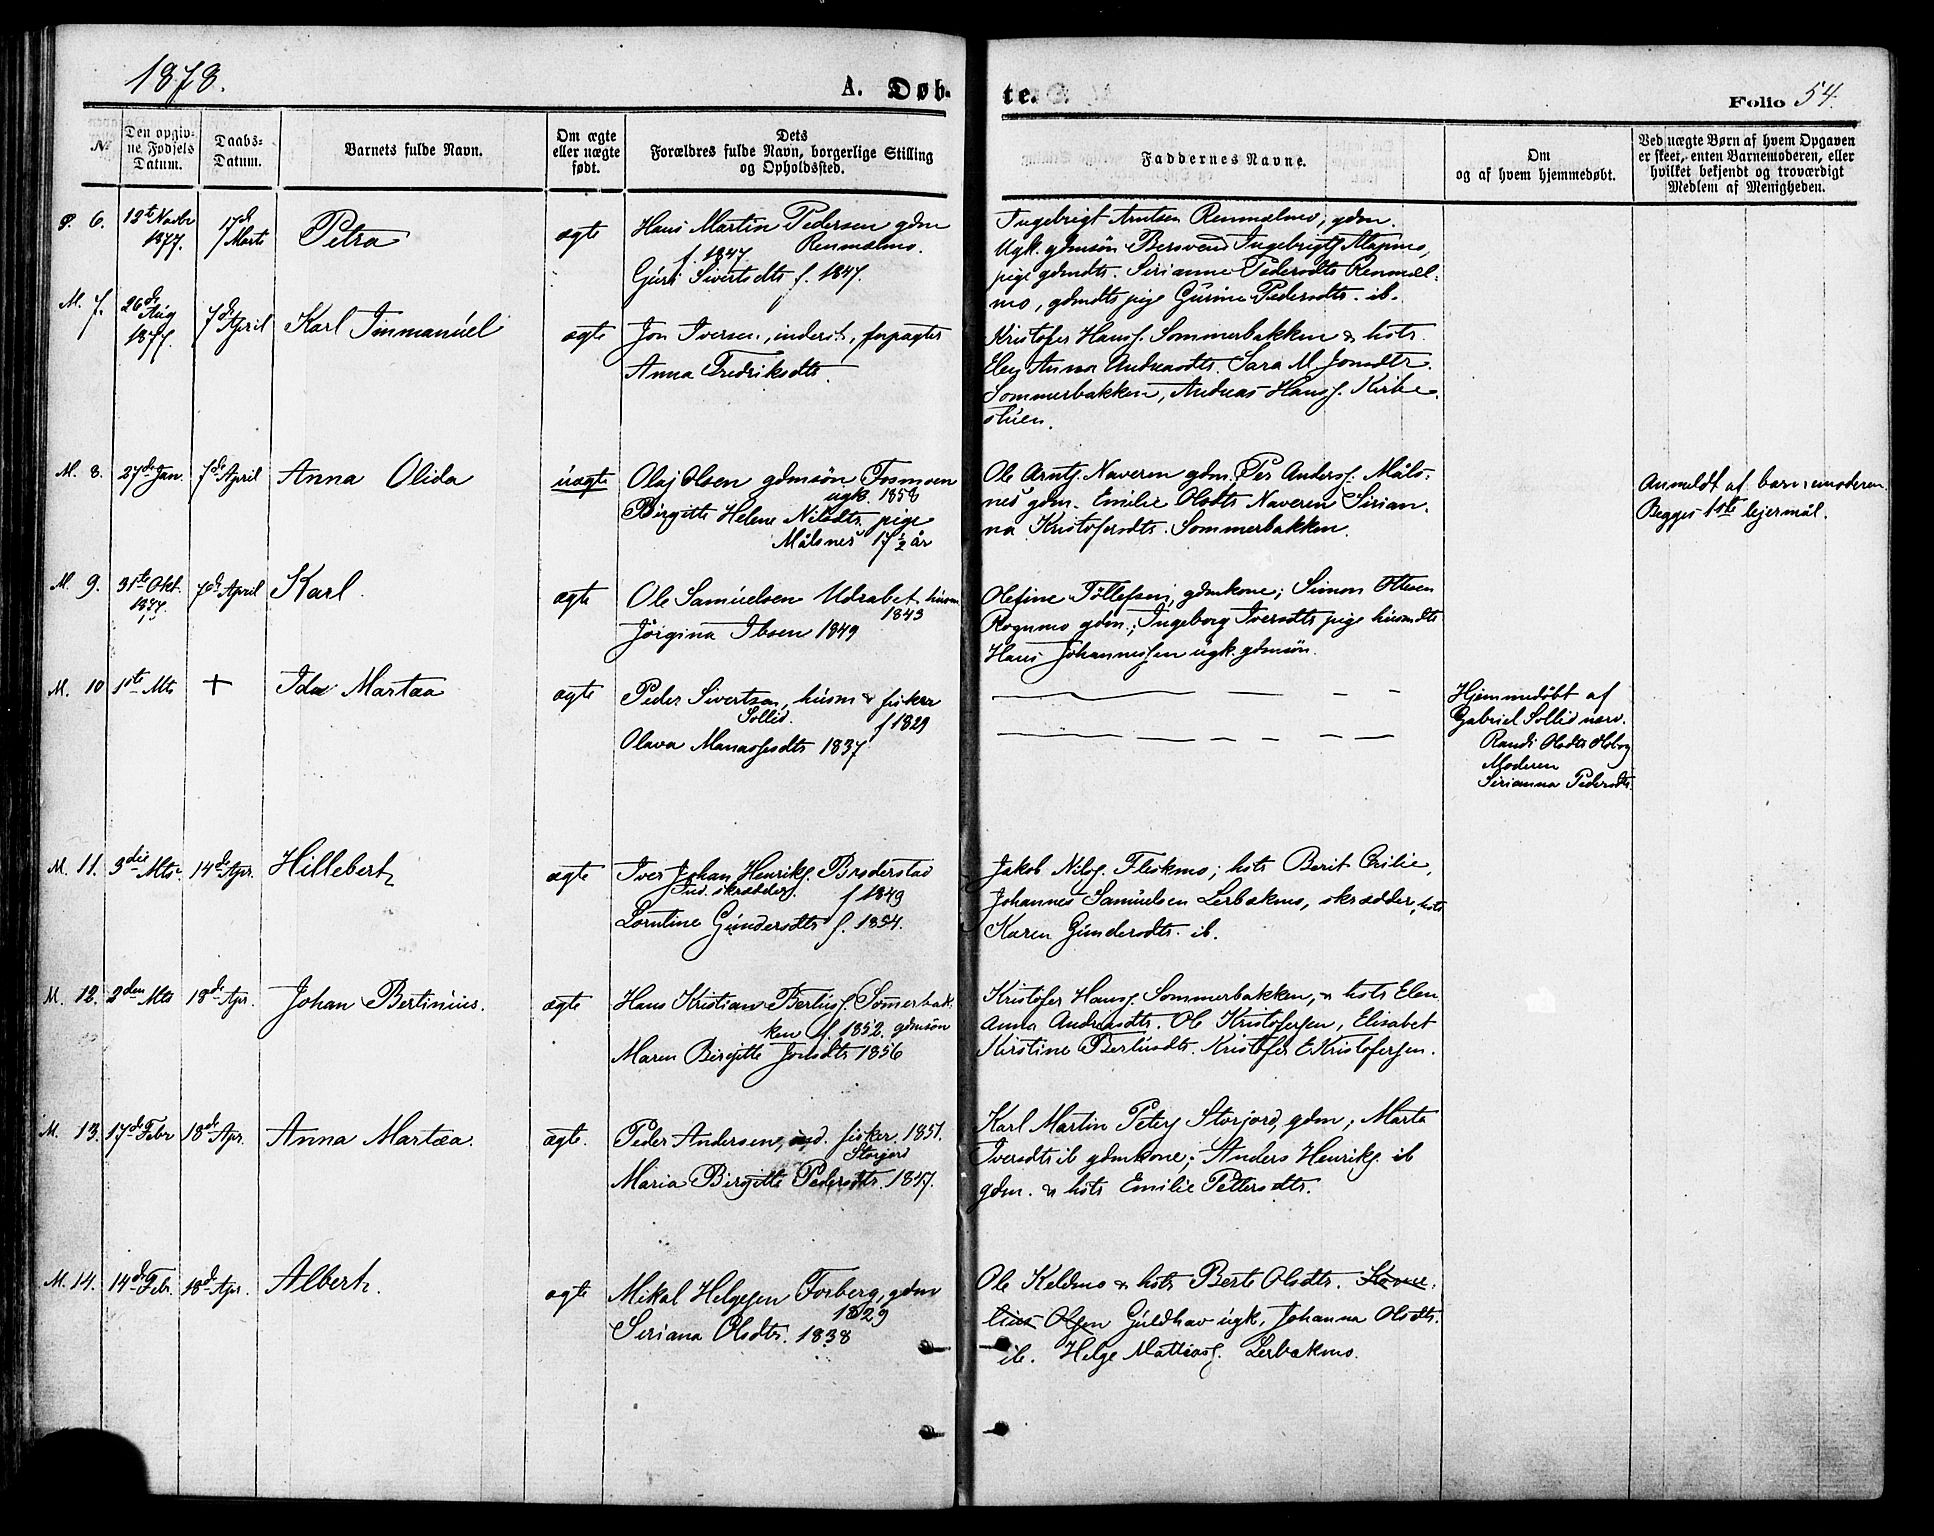 1878.
A. Døb-
te.
Folio 54.
№
Den opgiv-
ne Fødsels
Datum.
Daabs-
Datum.
Barnets fulde Navn.
Om ægte
eller uægte
født.
Dets
Forældres fulde Navn, borgerlige Stilling
og Opholdssted.
Faddernes Navne.
Om
og af hvem hjemmedøbt.
Ved uægte Børn af hvem Opgaven
er skeet, enten Barnemoderen, eller
hvilket bekjendt og troværdigt
Medlem af Menigheden.
6.
12te Novbr
1877.
17de
Marts
Petra
ægte
Hans Martin Pedersen gdm
Renmælmo.
f. 1847
Guri Sivertsdtr f. 1847.
Ingebrigt Arntsen Renmælmo, gdm.
Ugk. gdmsøn Bersvend Ingebrigts. Alapmo,
pige gdmdtr. Sirianne Pedersdtr Renmæl-
mo, gdmdtr pige Gurine Pedersdtr. ib.
M. 7.
26de
Aug
1877.
7de April
Karl Immanuel
ægte
Jon Iversen, inderst, forpagter
Anna Fredriksdtr.
Kristofer Hanss. Sommerbakken & hstr.
Elen Anna Andreasdtr. Sara M. Jonsdtr.
Sommerbakken, Andreas Hanss. Kirke-
stuen.
M. 8.
27de Jan.
7de April
Anna Olida
uægte
Olaj Olsen gdmsøn Fosmoen
ugk. 1858
Birgitte Helene Nilsdtr. pige
Målsnes 17½ år
Ole Arntz. Naveren gdm. Per Anderss. Måls-
nes gdm. Emilie Olsdtr Naveren Sirian-
na Kristofersdtr. Sommerbakken.
Anmeldt af barnemoderen.
Begges 1ste lejermål.
M. 9.
31te Okt.
1877.
7de April
Karl
ægte
Ole Samuelsen Udrabet, husm
1843
Jörgina Ibsen 1849
Olefine Tollefsen, gdmkone; Simon Ottesen
Rognmo gdm.; Ingeborg Iversdtr pige husmdtr
Hans Johannessen ugk. gdmsön.
M. 10
1ste Mts
+
Ida Martæa
ægte
Peder Sivertsen, husm & fisker
Sollid. f 1829
Olava Manassesdtr 1837
Hjemmedöbt af
Gabriel Sollid nærv.
Randi Olsdtr
Moderen
Sirianna Pedersdtr.
M. 11.
3die Mts.
14de Apr.
Hillebert
ægte
Iver Johan Henriks. Broderstad
Ind. skrædder. f 1849
Lorntine Gundersdtr f. 1854.
Jakob Nilss. Fleskmo; hstr Berit Cecilie,
Johannes Samuelsen Lerbækmo, skrædder, hstr
Karen Gundersdtr. ib.
M. 12.
2den Mts
18de Apr.
Johan Bertinius.
ægte
Hans Kristian Bertuss. Sommerbak-
ken f. 1852. gdmsön
Maren Birgitte Jonsdtr 1856
Kristofer Hanss. Sommerbakken, & hstr Elen
Anna Andreasdtr. Ole Kristofersen, Elisabet
Kirstine Bertusdtr. Kristofer E Kristofersen.
M. 13.
17de Febr
18de Apr.
Anna Martæa.
ægte.
Peder Andersen, ind. fisker. 1851.
Storjord
Maria Birgitte Pedersdtr. 1847.
Karl Martin Peters. Storjord, gdm; Marta
Iversdtr ib gdmkone; Anders Henriks. ib
gdm. & hstr Emilie Pettersdtr.
M. 14.
14de Febr.
18de Apr.
Albert.
ægte
Mikal Helgesen Forberg, gdm
1829
Seriana Olsdtr. 1838
Ole Keldmo & hstr Berte Olsdtr. Korne-
lius Olsen Guldhav ugk, Johanna Olsdtr.
ib. Helge Mattiass. Lerbækmo.